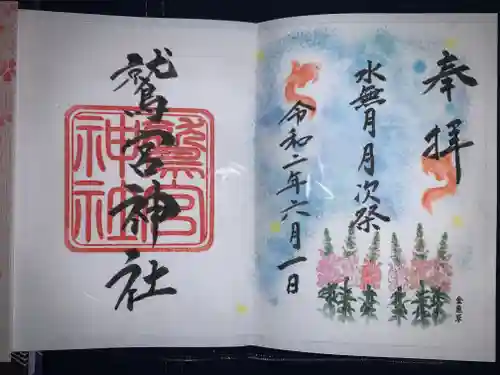 奉拝
水無月月次祭
令和二年六月一日
金魚草
鷲宮神社
鷲宮
神社